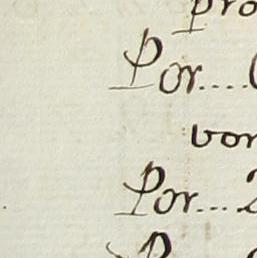 pro
Por....
vor
Por....2
P